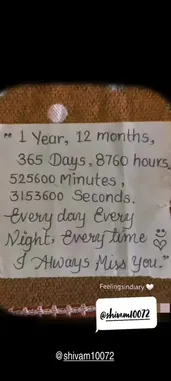 " 1 Year, 12 months,
365 Days, 8760 hours,
525600 Minutes,
3153600 Seconds.
Every day Every
Night, Every time
I Always Miss You."
Feelingsindiary
@shivam10072
@shivam10072